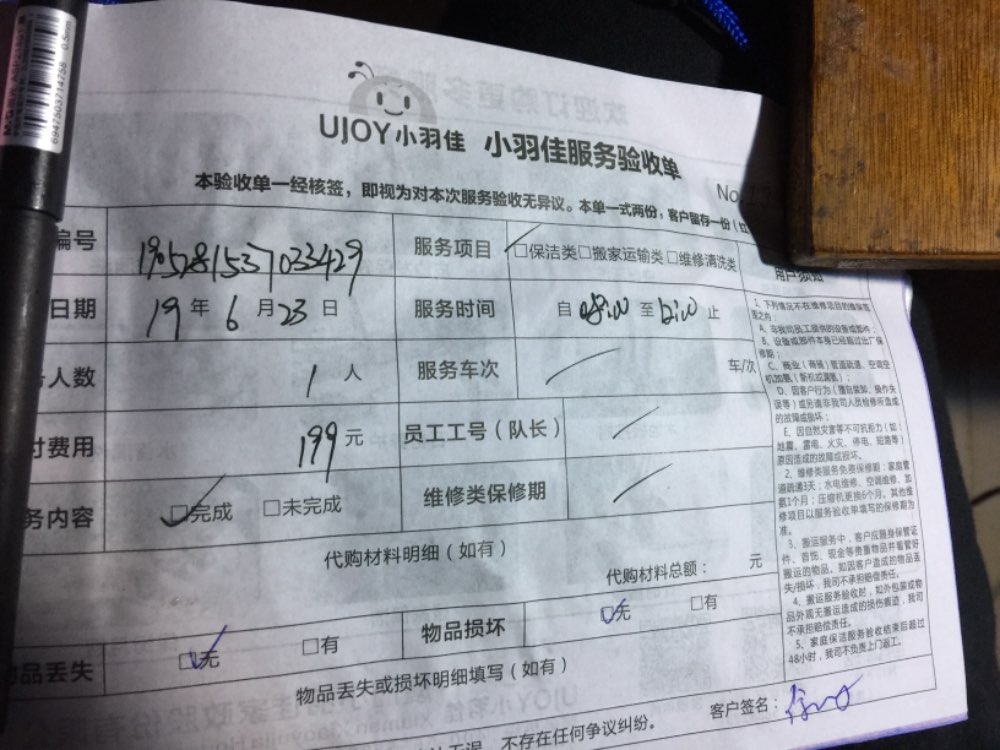 UJOY小羽佳 小羽佳服务验收单
本验收单一经核签，即视为对本次服务验收无异议。本单一式两份，客户留存一份
No
编号 服务项目 □保洁类□搬家运输类□维修清洗类
日期 19 年 6 月 23 日 服务时间 自 08:00 至 12:00 止
人数 1 人 服务车次 车/次
付费用 199 元 员工工号（队长）
务内容 □完成 □未完成 维修类保修期
代购材料明细（如有）
代购材料总额： 元
物品丢失 □无 □有 物品损坏 □无 □有
物品丢失或损坏明细填写（如有）
不存在任何争议纠纷。
客户签名：
用户须知
1、下列情况不在维修项目的维保范
围之内：
A、非我司员工提供的设备或部件；
B、设备或部件本身已经超过出厂保
修期；
C、商业（商铺）管道疏通、空调空
机加氨（新机或漏氨）；
D、因客户行为（擅自装卸、操作失
误等）或另请非我司人员检修所造成
的故障或损坏；
E、因自然灾害等不可抗拒力（如：
地震、雷电、火灾、停电、短路等）
原因造成的故障或损坏。
2、维修类服务免费保修期：家庭管
道疏通3天；水电维修、空调维修、加
氨1个月；压缩机更换6个月。其他维
修项目以服务验收单填写的保修期为
准。
3、搬运服务中，客户应随身保管证
件、首饰、现金等贵重物品并看管好
搬运的物品。如因客户造成的物品丢
失/损坏，我司不承担赔偿责任。
4、搬运服务验收时，如外包装或物
品外观无搬运造成的损伤痕迹，我司
不承担赔偿责任。
5、家庭保洁服务验收结束后超过
48小时，我司不负责上门返工。
6947503714756
0.5mm